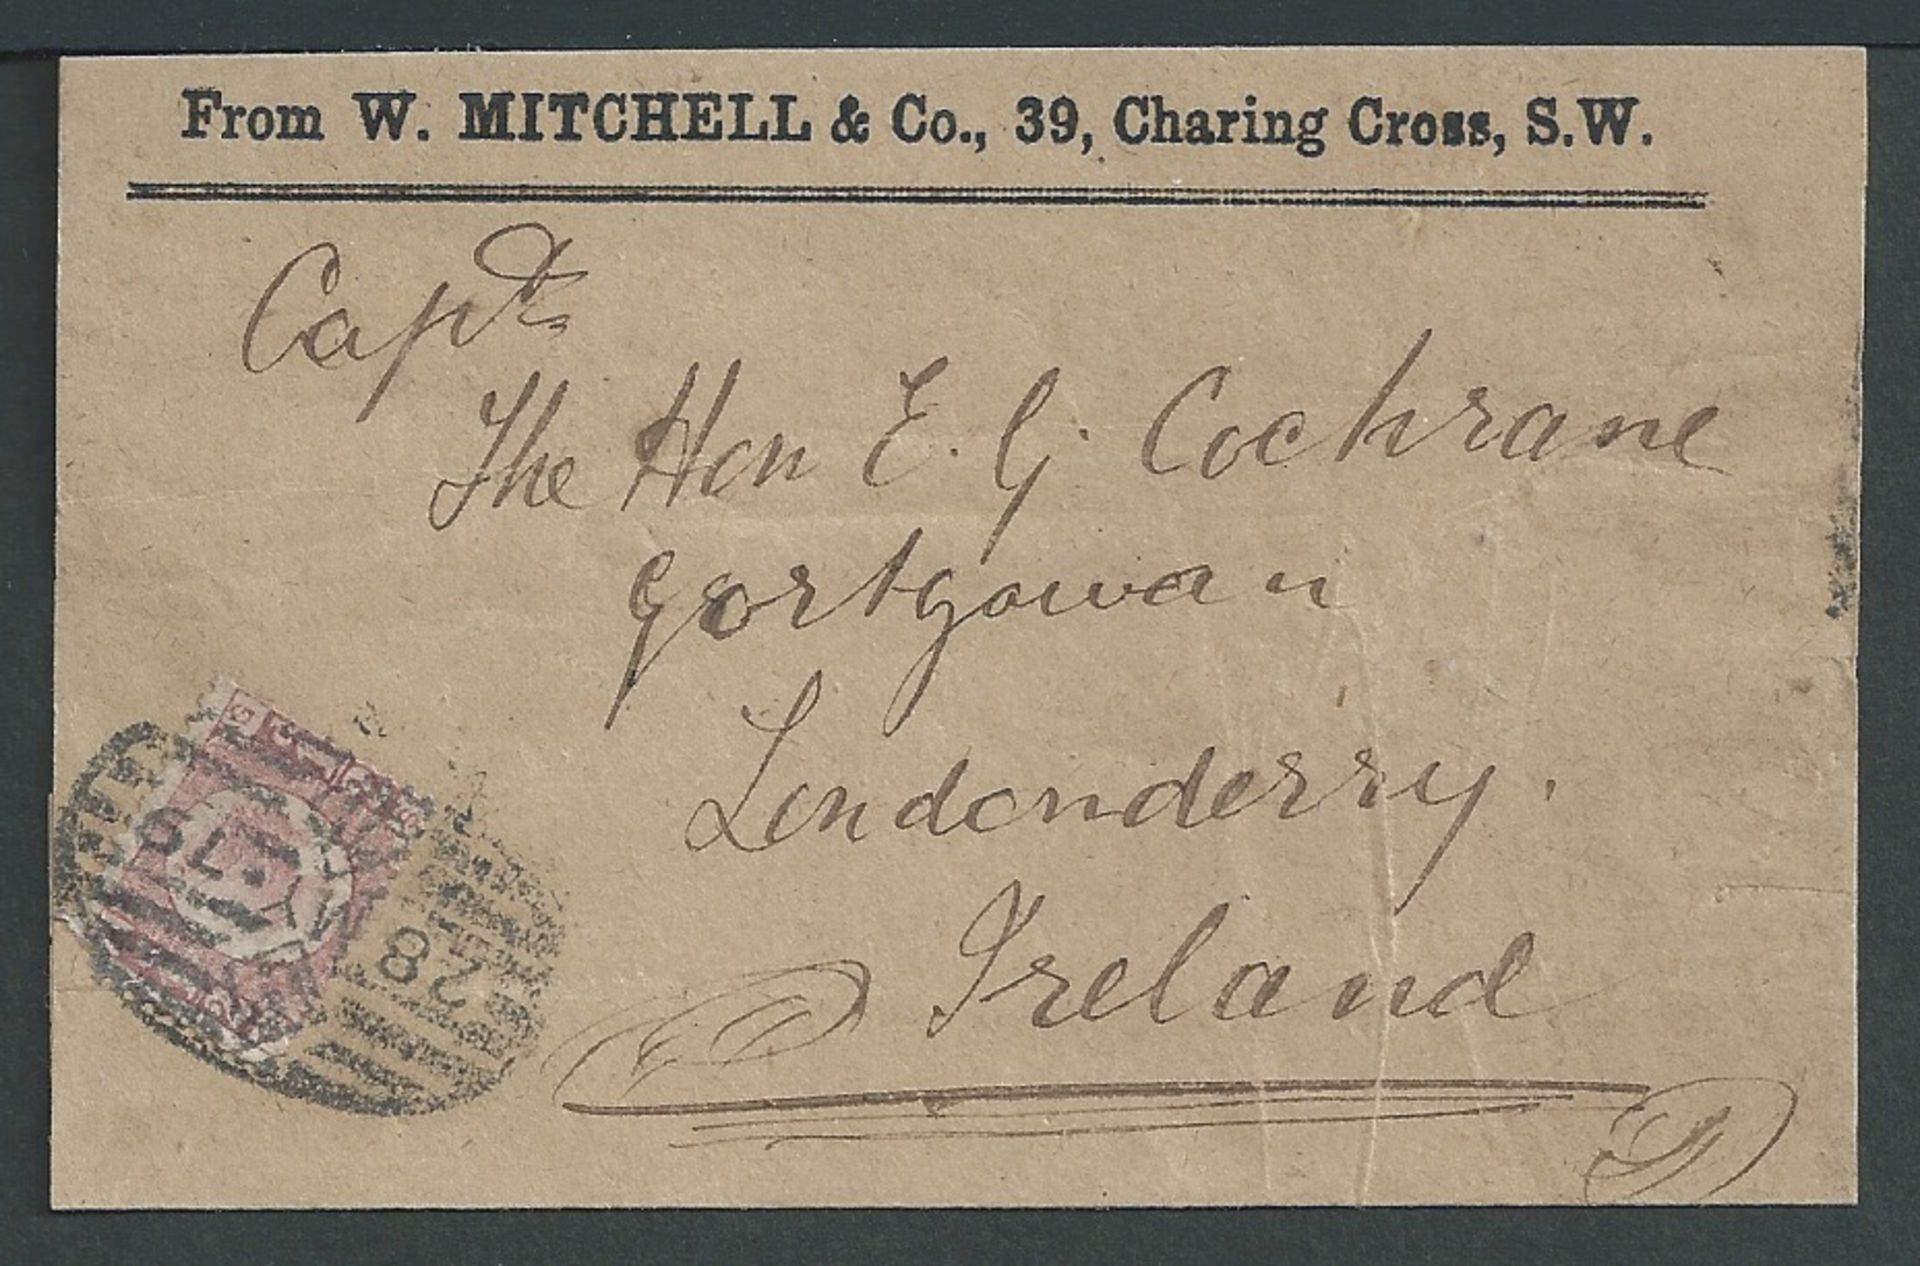 From W. MITCHELL & Co., 39, Charing Cross, S.W.
Capt
The Hon E. G. Cochrane
Gortgowan
Londonderry.
Ireland
82